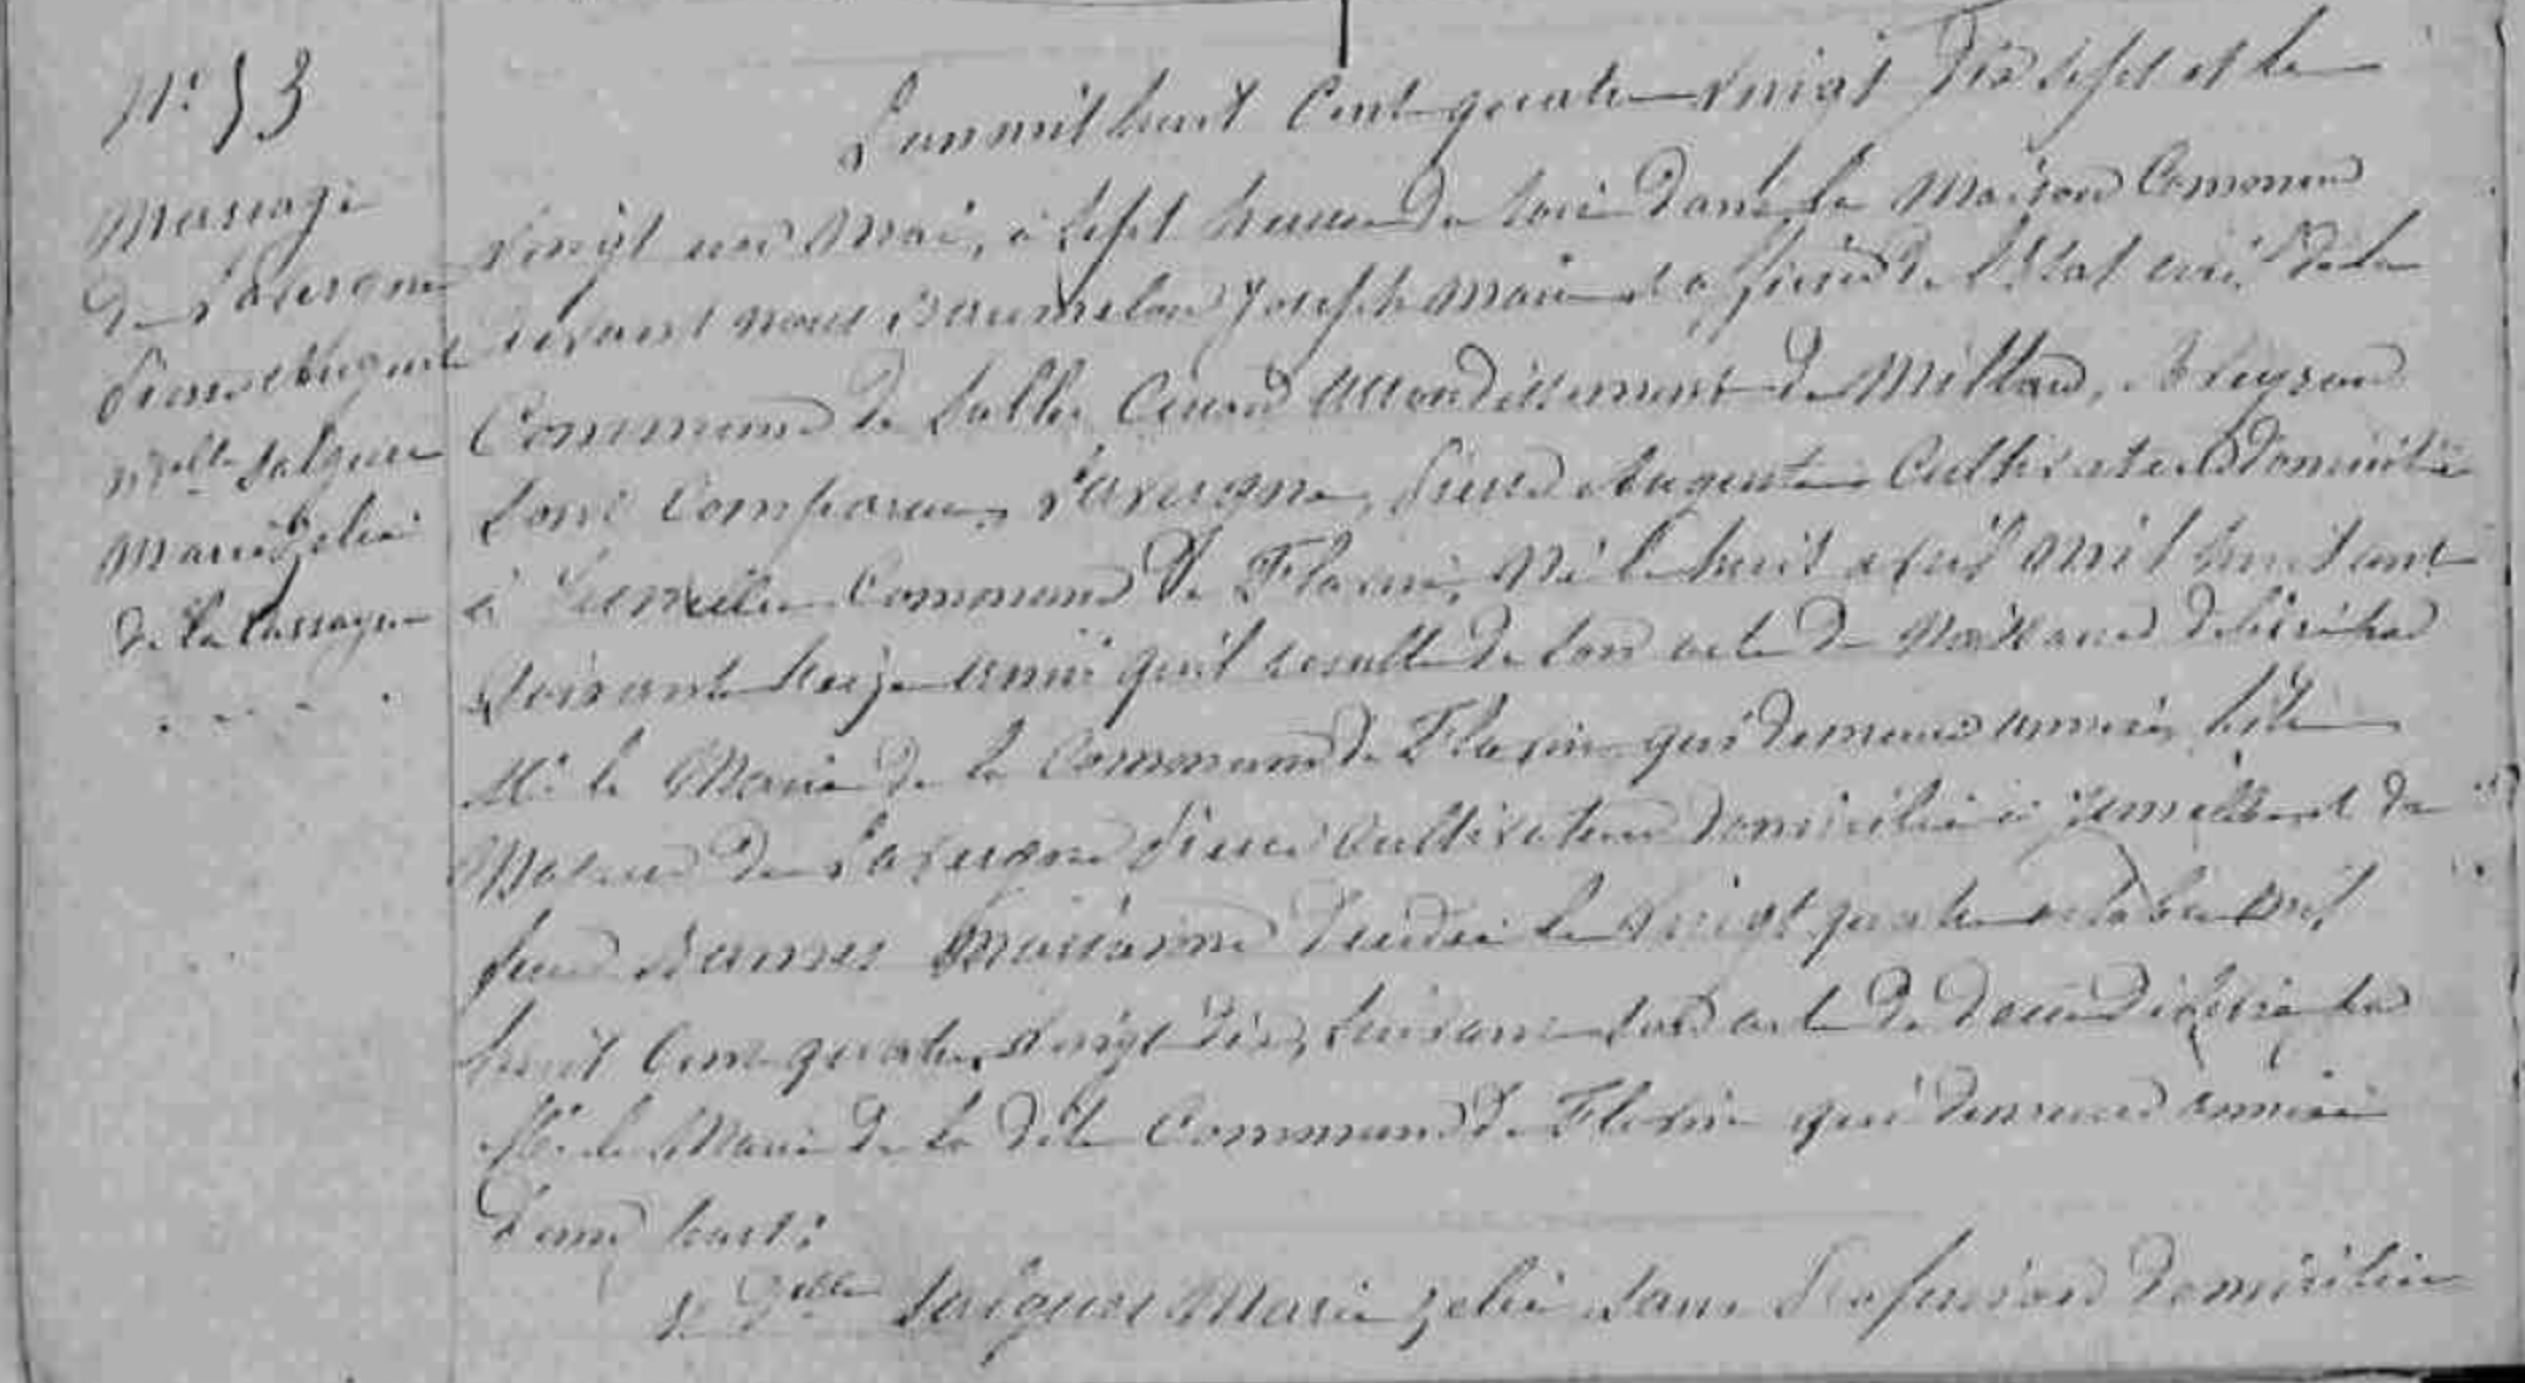 N° 53
Mariage
de Lavergne
Pierre Auguste
& Melle Salgues
Marie Zélie
de la Cassagne
L'an mil huit Cent quatre vingt Dix sept et le
vingt un Mai, à sept heures du soir dans la Maison Commune
devant nous Joseph Maire et officier de l'état civil de la
Commune de Salles Curan arrondissement de Millau, Aveyron
Sont Comparus, Lavergne, Pierre Auguste Cultivateur domicilié
à Commune de Flavin, Né le huit avril mil huit cent
soixante treize ainsi qu'il resulte de son acte de Naissance délivré par
Mr le Maire de la Commune de Flavin qui demeure annexé, fils
Majeur de Lavergne Pierre Cultivateur domicilié à et de
feue Marianne décédée le vingt quatre octobre mil
huit Cent quatre vingt dix, suivant son acte de décès délivré par
Mr le Maire de la dite Commune de Flavin qui demeure annexé
d'une part;
& Delle Salgues Marie Zélie sans Profession domiciliée